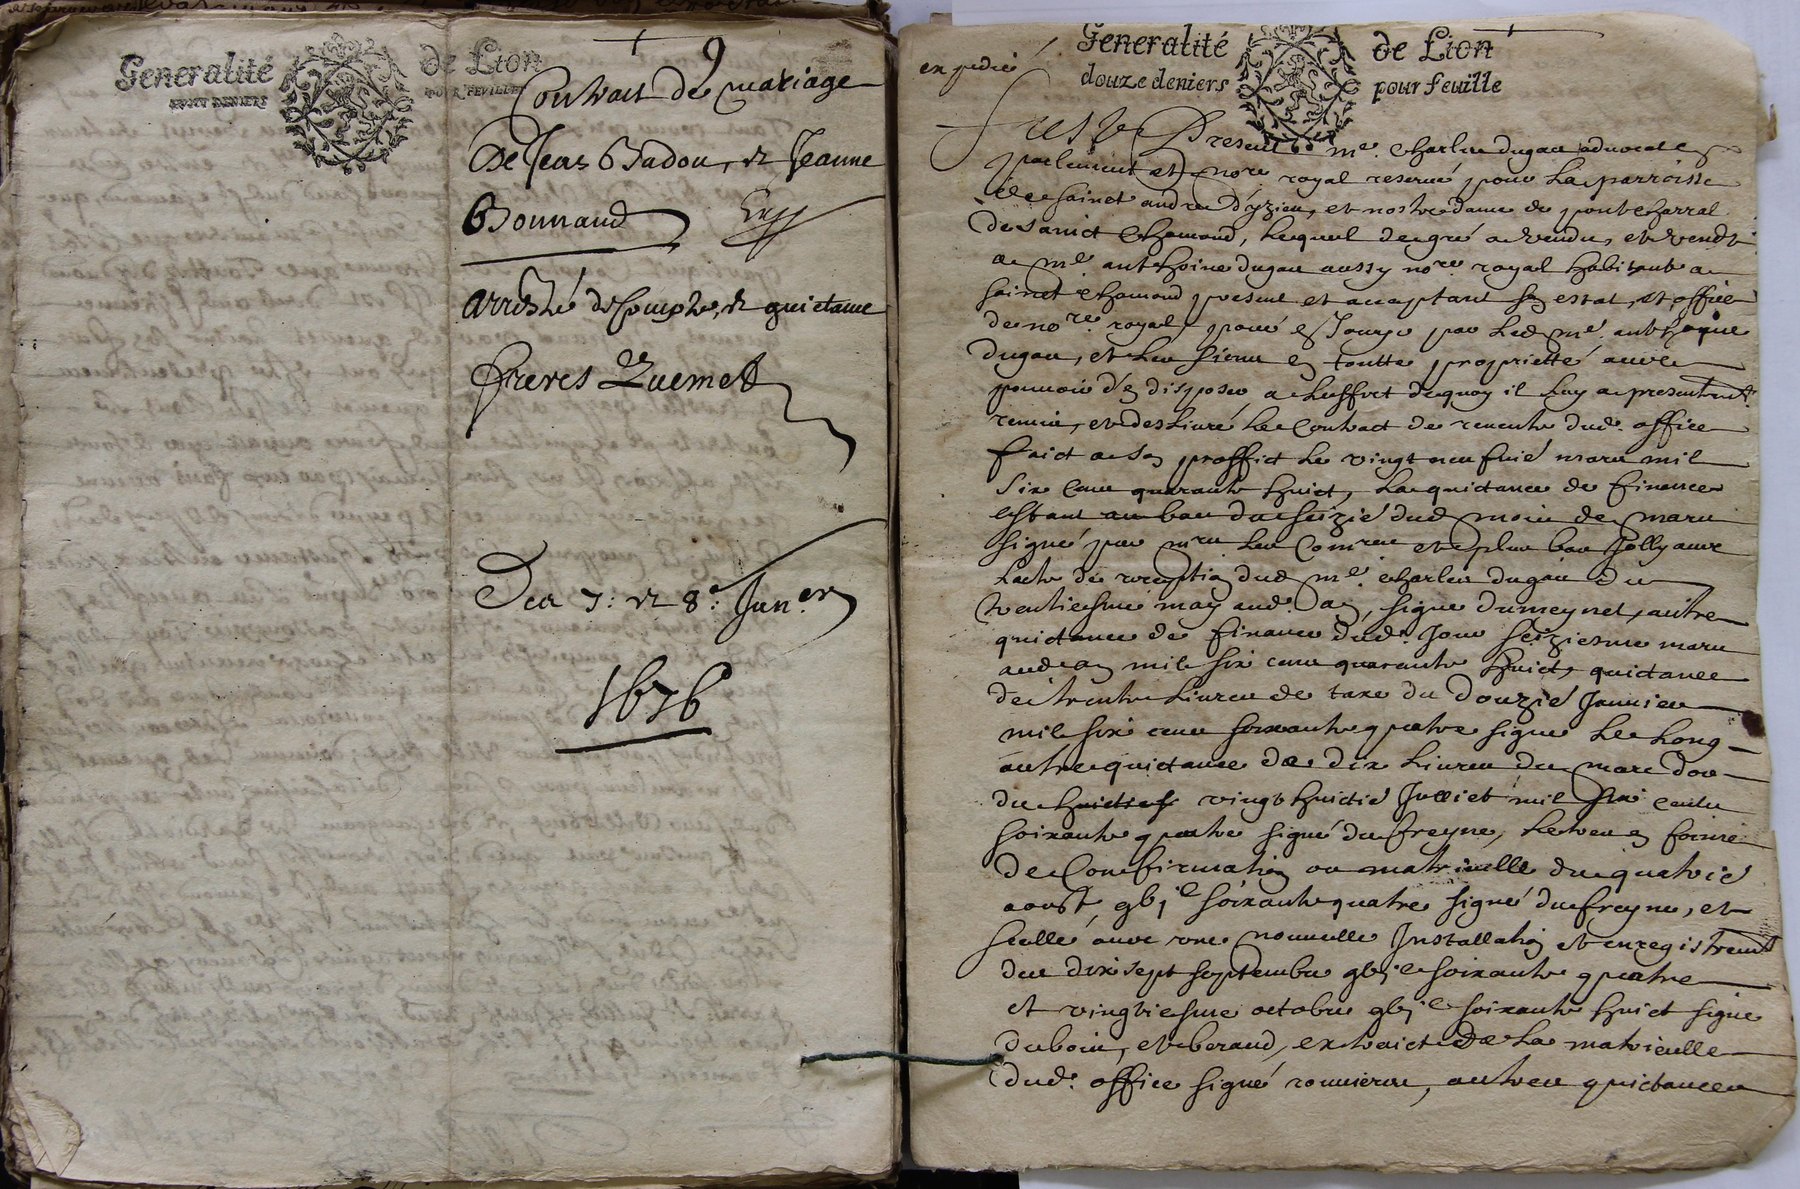 Generalité de Lion
HUIT DENIERS POUR FEUILLE
9
Contract de mariage
De Jean Badou, et Jeanne
Bonnand Exp
arresté de Compte, et quictance
freres
Des 7: et 8e: Janer
1676
expedié
Generalité de Lion
douze deniers pour feuille
Present me. Charles dugas advocat en
parlement et nore royal reservé pour la parroisse
de sainct andre d'yzieu, et nostre dame de pont charral
de sainct Chamond, lequel de gré a vendu, et vend
a me. anthoine dugas aussy nore. royal habitant a
sainct Chamond present et acceptant son estat, et office
de nore. royal, pour en Jouyr par led me. anthoine
dugas, et les siens en toutte proprietté avec
pouvoir d'en disposer, a l'effect de quoy il luy a presentemt.
remis, et deslivré le Contract de revente dud. office
faict a son proffict le vingt neufvie mars mil
six cens quarante huict, la quictance de finance
estant au bas du seizie dud mois de mars
signé par mrs les Comres et plus bas Jolly avec
l'acte de reception dud me. Charles dugas du
trentiesme may aud. an, signe dumeynet, autre
quictance de finance dud. Jour seiziesme mars
aud an mil six cens quarante huict, quictance
de trente livres de taxe du douzie Janvier
mil six cens soixante quatre signe le long
autre quictance de dix livres du marc d'or
du vingt huictie Juillet mil six cents
soixante quatre signé du freyne, lettres en forme
de Confirmation ou matricule du quatrie
aoust, gbjc soixante quatre signé du freyne, et
scelle avec une nouvelle Installation et enregistremt
du dix sept septembre gbjc soixante quatre
et vingtiesme octobre gbjc soixante huict signe
dubois, et beraud, extraict de la matricule
dud. office signé, autres quictances